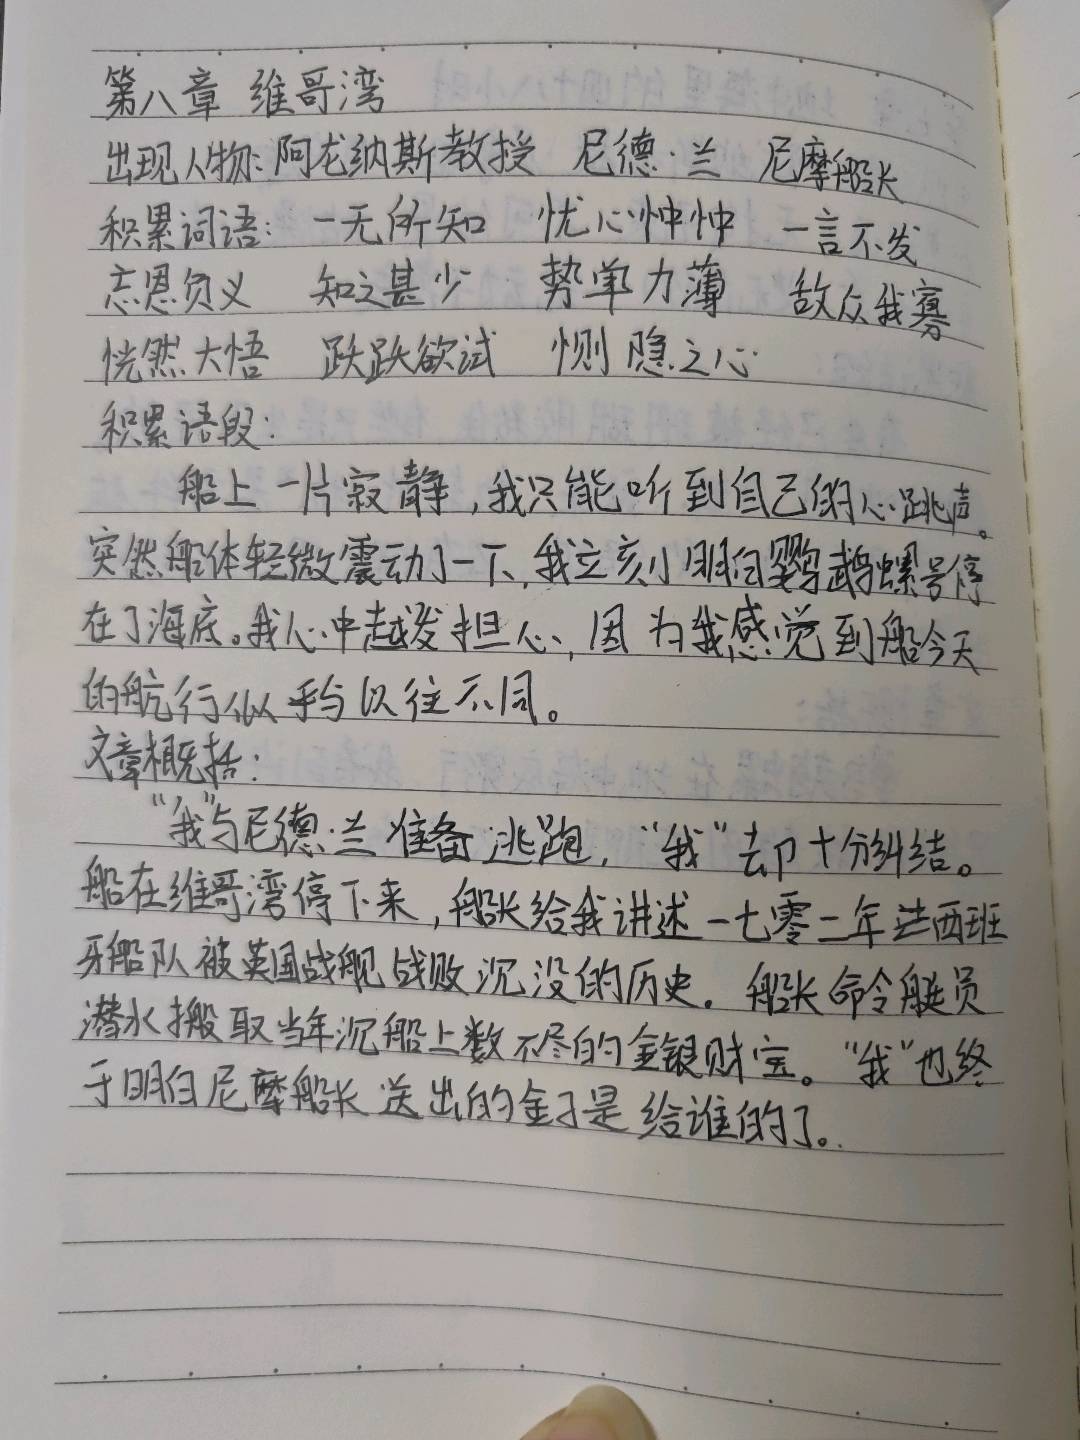 第八章 维哥湾
出现人物:阿龙纳斯教授 尼德·兰 尼摩船长
积累词语: 一无所知 忧心忡忡 一言不发
忘恩负义 知之甚少 势单力薄 敌众我寡
恍然大悟 跃跃欲试 恻隐之心
积累语段:
船上一片寂静,我只能听到自己的心跳声。
突然船体轻微震动了一下,我立刻明白鹦鹉螺号停
在了海底。我心中越发担心,因为我感觉到船今天
的航行似乎与以往不同。
文章概括:
“我”与尼德·兰准备逃跑,“我”却十分纠结。
船在维哥湾停下来,船长给我讲述一七零二年法西班
牙船队被英国战舰战败沉没的历史。船长命令艇员
潜水搬取当年沉船上数不尽的金银财宝。“我”也终
于明白尼摩船长送出的金子是给谁的了。